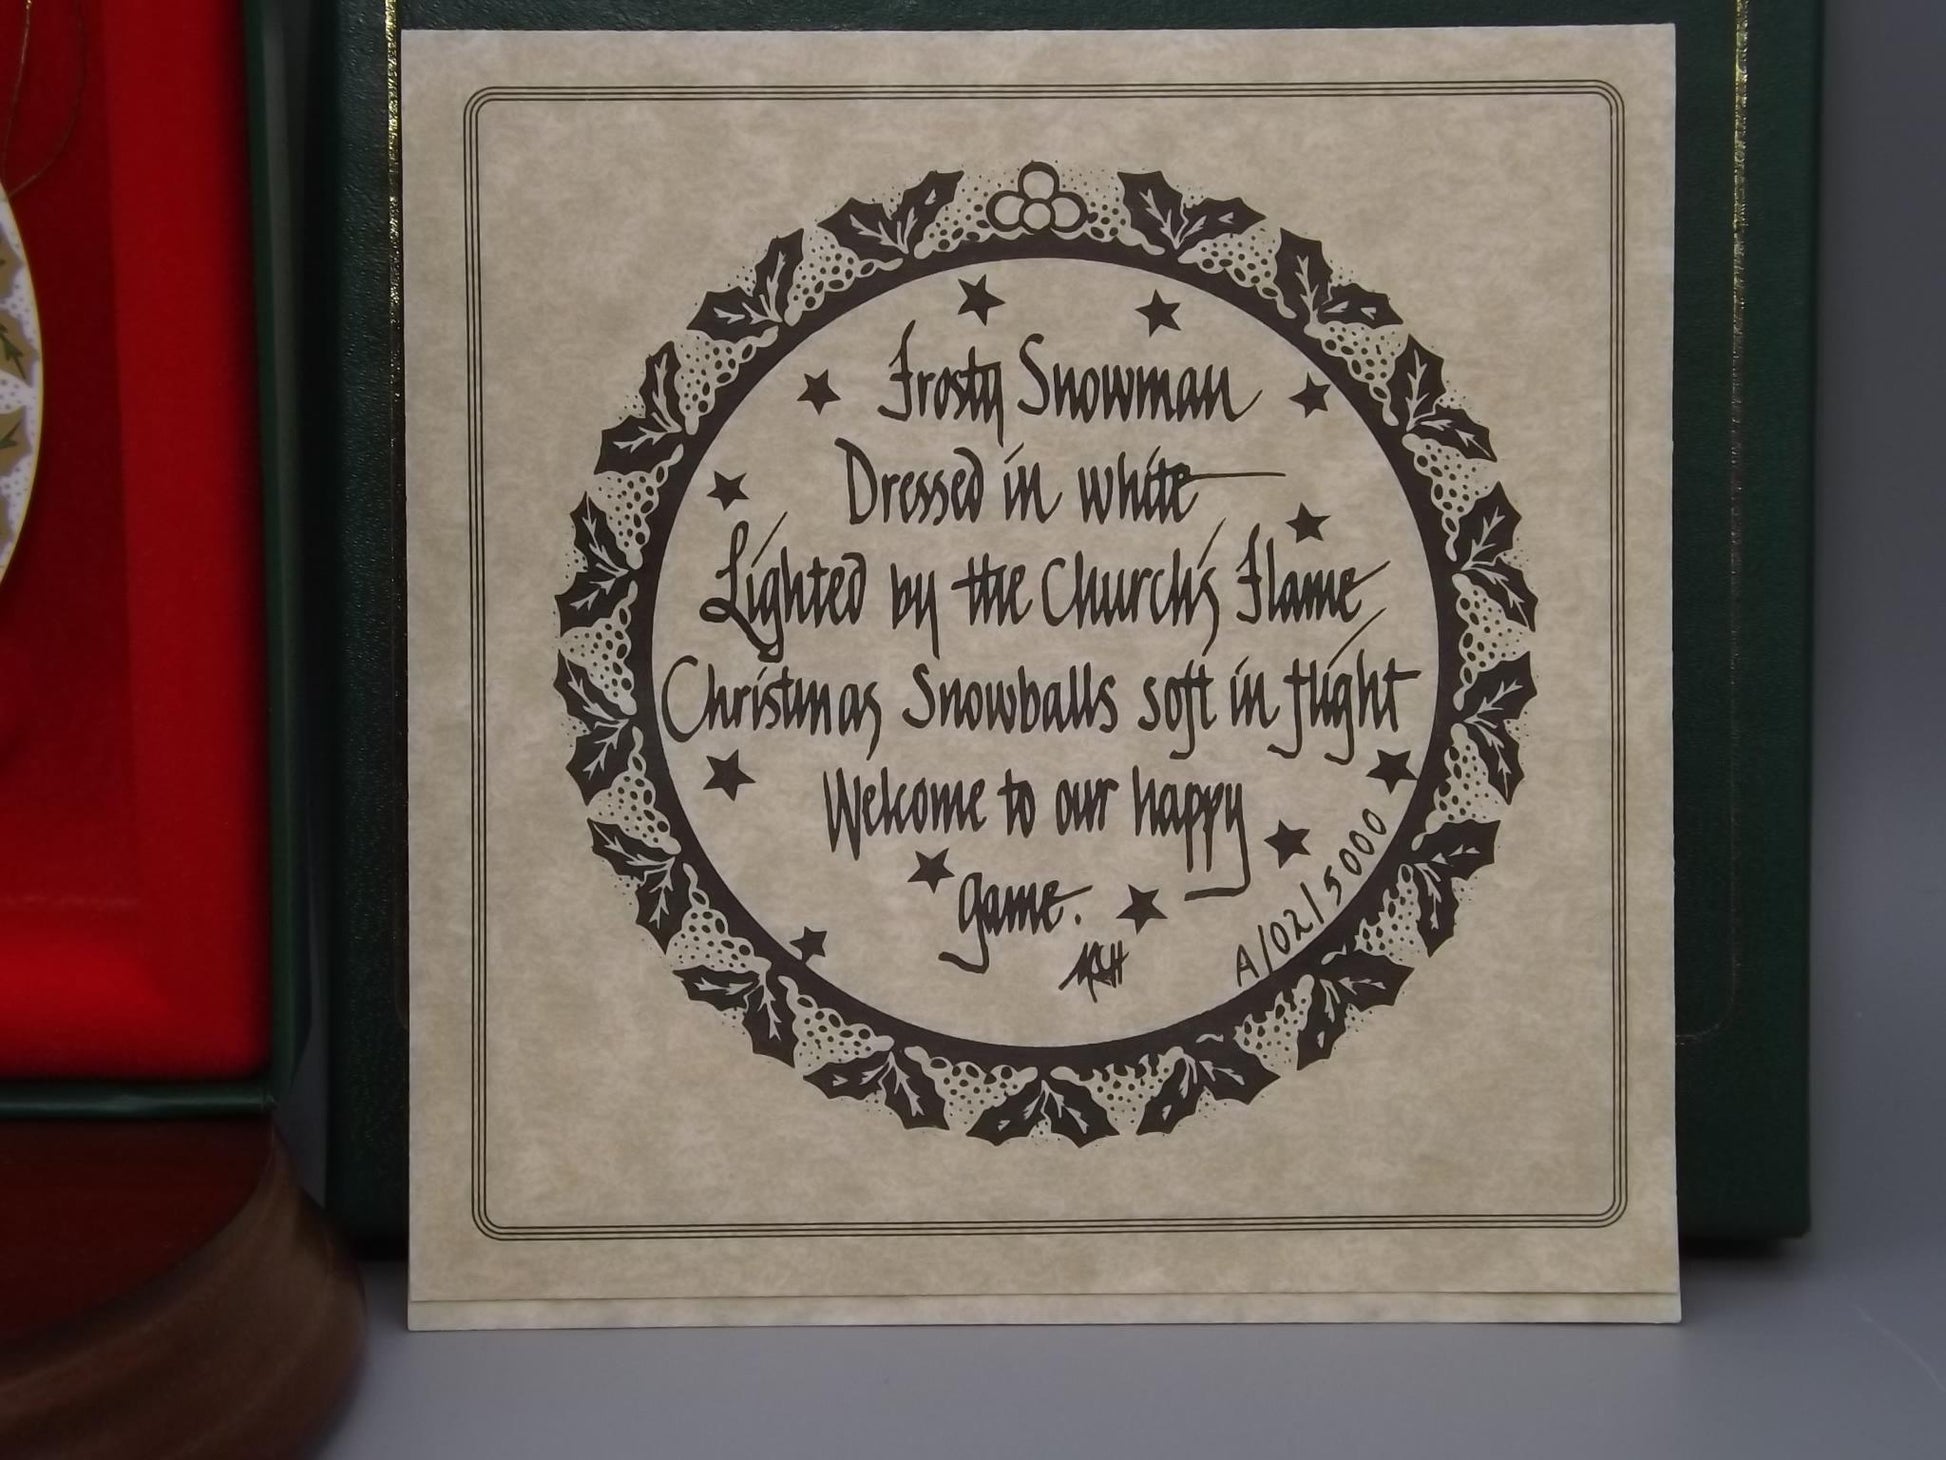 Frosty Snowman
Dressed in white
Lighted by the Church's Flame
Christmas Snowballs soft in flight
Welcome to our happy
game.
A/02/5000